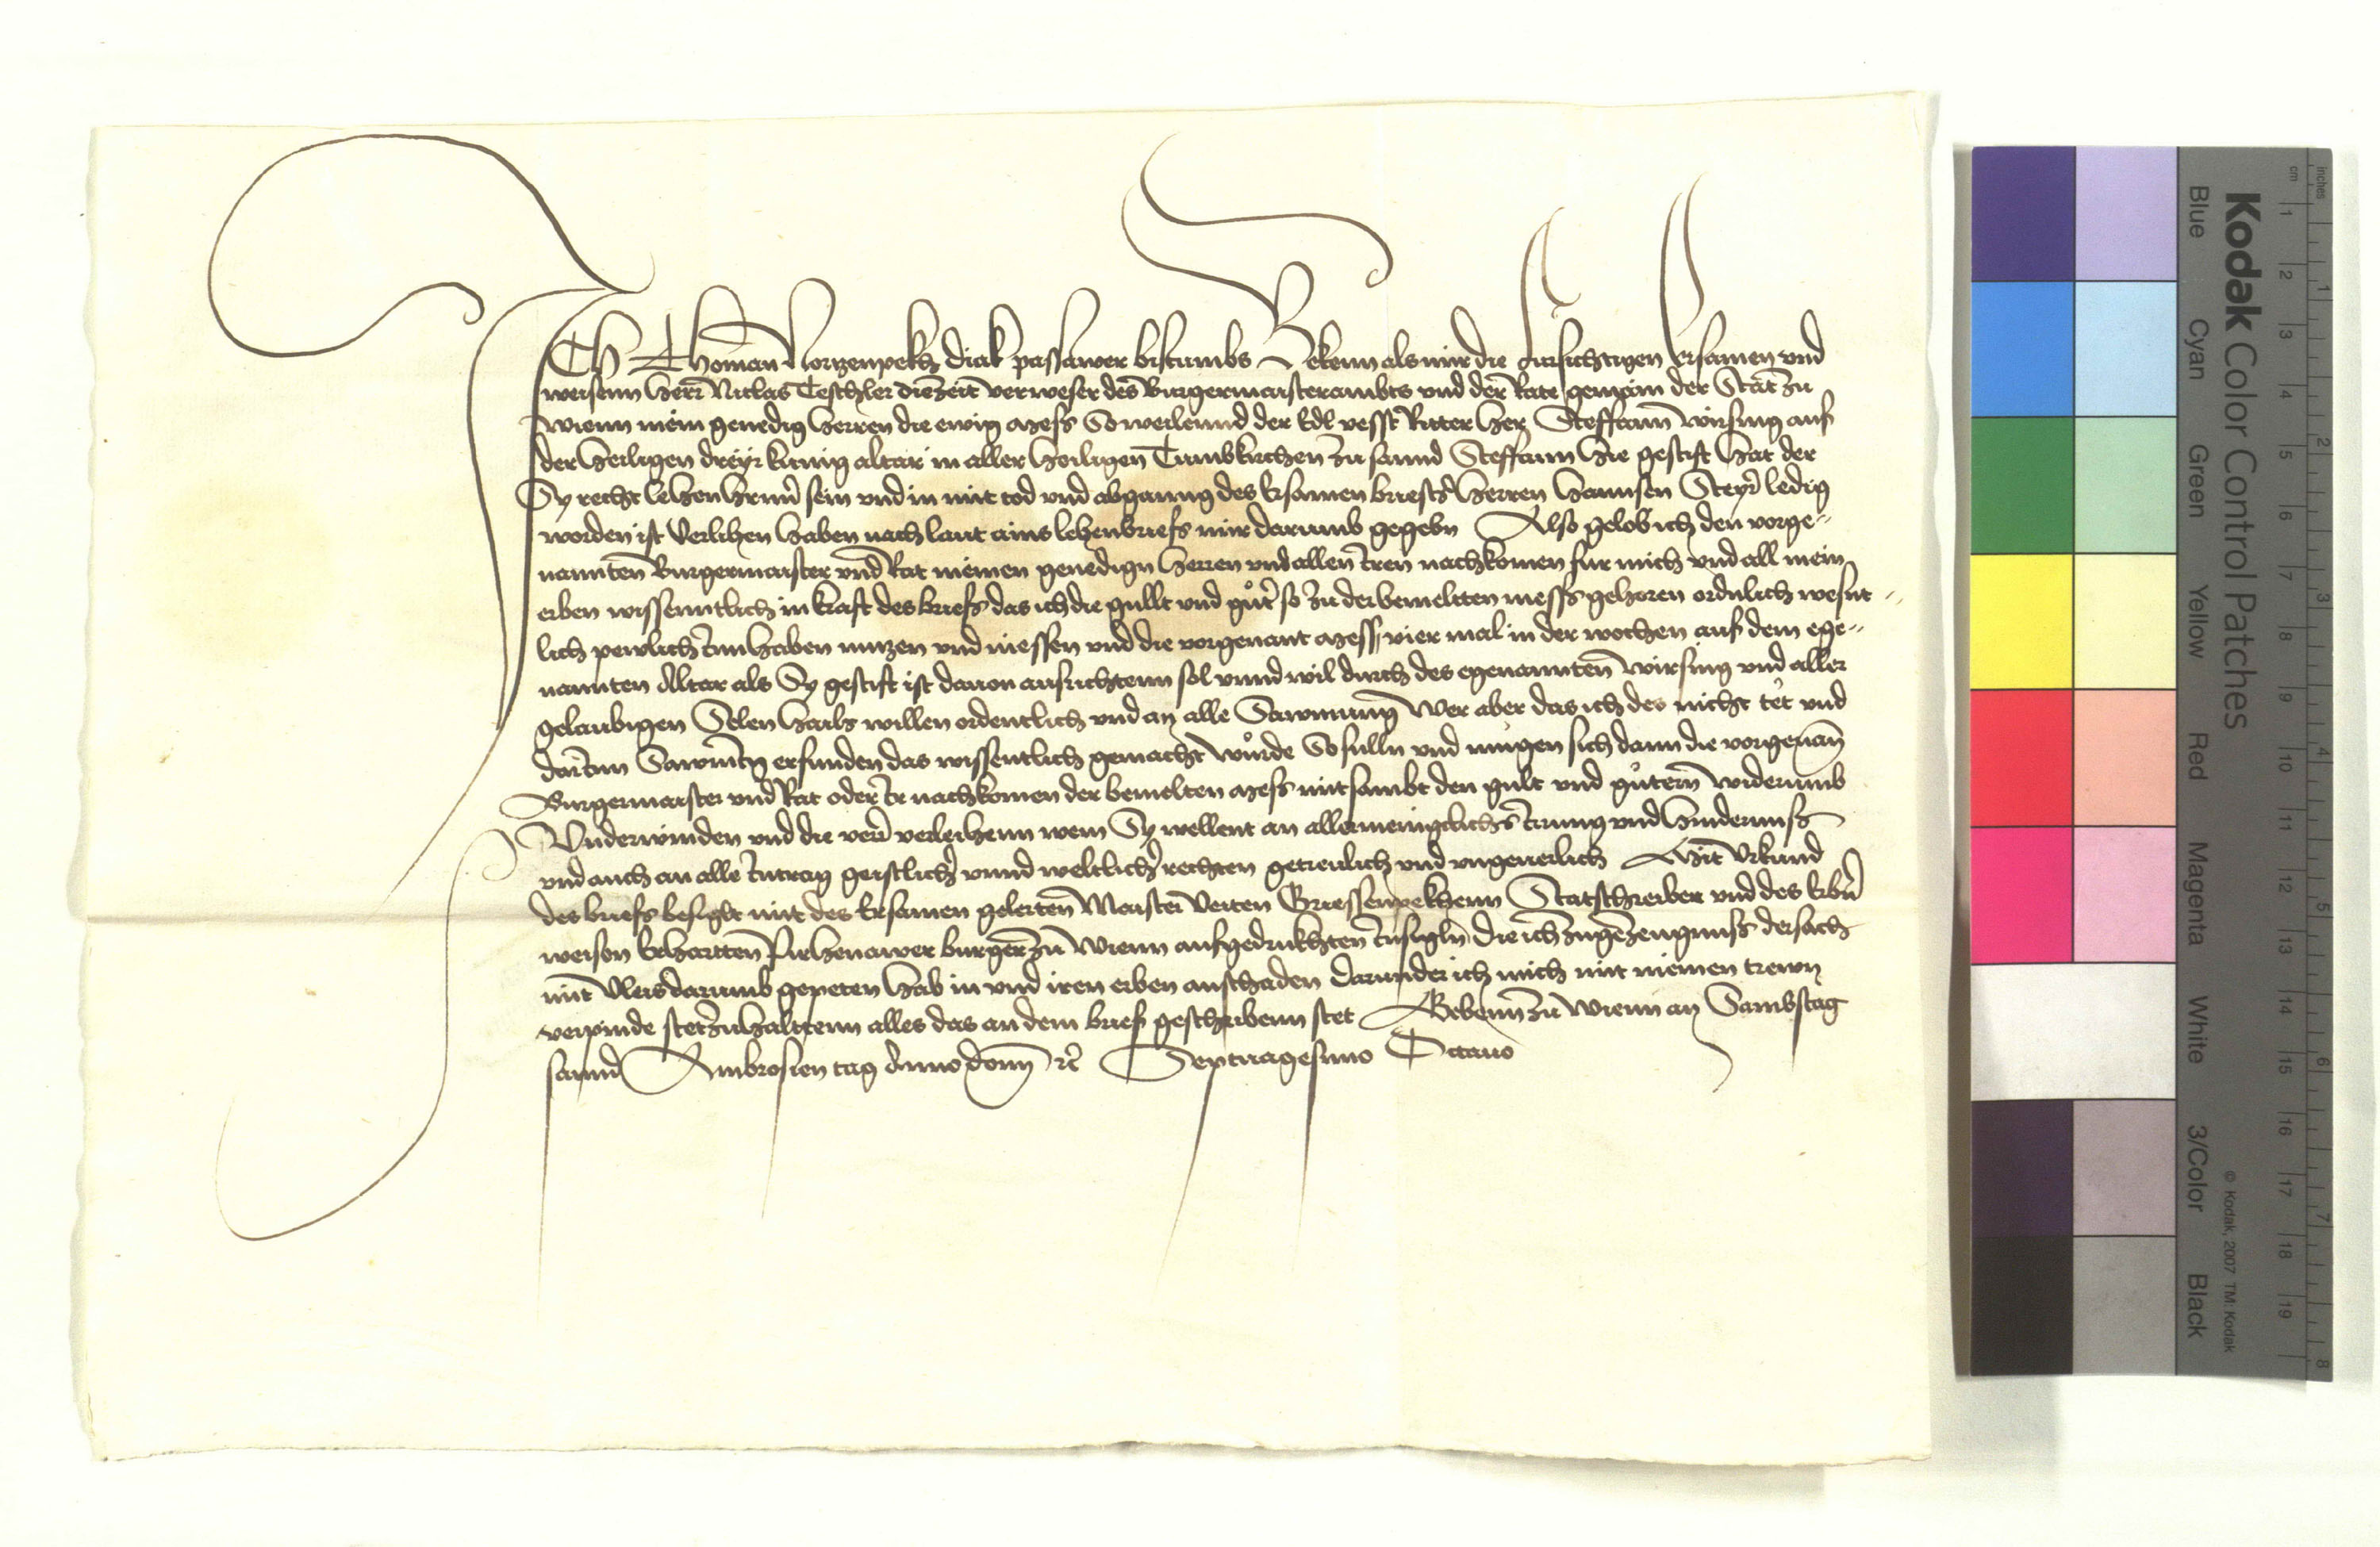 Ich Thoman diak passawer bistumbs Bekenn als mir die fursichtigen ersamen und
weisenn herrn Niclas Teschler diezeit verweser des Burgermaisterambts und der Rate gemain der Stat zu
Wienn mein genedig herren die ewig mess So weilennd der Edl vesst Ritter her Steffann wirsing auf
der heiligen dreyr kunig altar in aller heiligen Tumbkirchen zu sannd Steffann hie gestift hat der
Sy recht lehenherrn sein und in mit tod und abganng des Ersamen briesters herren hannsen Steyrer ledig
worden ist verlihen haben nach laut ains lehenbriefs mir darumb gegebn Also gelob ich den vorge-
nannten Burgermaister und Rat meinen genedign herren und allen iren nachkomen fur mich und all mein
erben wissenntlich in kraft des briefs das ich die gullt und guter so zu der bemeltten mess gehoren ordnlich wesnt-
lich pewlich innhaben nutzen und niessen und die vorgenant mess vier mal in der wochen auf dem ege-
nannten Altar als Sy gestift ist davon ausrichtenn sol unnd wil durch des egenannten wirsing und aller
gelaubigen Selen hails willen ordentlich und an alle Sawmung Wer aber das ich des nicht tet und
darinn Sawmig erfunden das wissentlich gemacht wurde So sulln und mugen sich dann die vorgenan
Burgermaister und Rat oder ir nachkomen der bemelten mess mitsambt den gult und gutern widerumb
Underwinden und die verrer verleihenn wem Sy wellent an allermeingclichs irrung und hindernuss
und auch an alle intrag geistlicher unnd weltlicher rechten getreulich und ungeverlich Mit Urkund
des briefs besiglt mit des Ersamen gelerten Maister Veiten Griessenpekhenn Statschreiber und des Erbern
weisen Erhartten burger zu Wienn aufgedrukhten insigln die ich zu gezeugnuss der sach
mit vleis darumb gepeten hab in und iren erben anschaden darunder ich mich mit meinen trewn
verpinde stet zuhalttenn alles das an dem brief geschribenn stet Gebenn zu Wienn an Sambstag
sannd Ambrosien tag Anno domini etc Septuagesimo Octavo
Kodak Color Control Patches
Blue Cyan Green Yellow Red Magenta White 3/Color Black
© Kodak, 2007 TM: Kodak
inches 1 2 3 4 5 6 7 8
cm 1 2 3 4 5 6 7 8 9 10 11 12 13 14 15 16 17 18 19